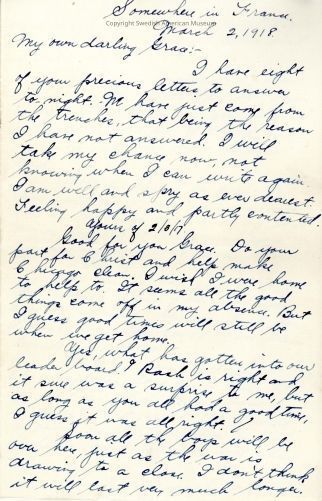 Somewhere in France.
Copyright Swedish American Museum
March 2, 1918
My own darling Grace:-
I have eight
of your precious letters to answer
to, night. We have just come from
the trenches, that being the reason
I have not answered. I will
take my chance now, not
knowing when I can write again.
I am well and spry as ever dearest
Feeling happy and partly contented.
Yours of
Good for you Grace. Do your
part for Christ and help make
Chicago clean. I wish I were home
to help to. It seems all the good
things come off in my absence. But
I guess good times will still be
when we get home.
Yes, what has gotten into our
leader board? is right and
it sure was a surprise to me, but
as long as you all had a good time,
I guess it was all right.
Soon all the boys will be
over here, just as the war is
drawing to a close. I don't think
it will last very much longer.